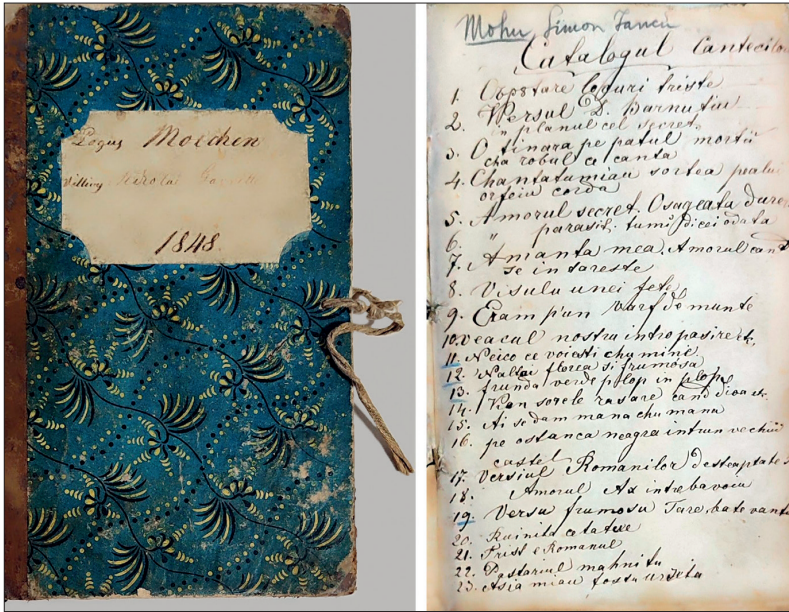 Logus Moldren
Nicolai
1848
Mohu Simon Iancu
Catalogul Cantecilor
1. Oopstare locuri triste
2. Versul D. Barnutiu
in planul cel secret
3. O tinara pe patul mortii
cha robul a canta
4. Chantatumiau sortea
orfeiu corda
5. Amorul secret. Osageata
6. " parasit. tumi dicei odata
7. Amanta mea. Amorul cand
se in sareste
8. Visulu unei fete
9. Eram p'un varf de munte
10. veacul nostru intro pasire
11. Neico ce voiati chu mine
12. floréa si frumosa
13. frunda verde plop in plop
14. sorele rasare cand
15. Ai se dam mana chu mana
16. pe o stanca neagra intrun vechiu
castel
17. Versiul Romanilor desteaptate
18. Amorul Ax intrebavoiu
19. Versu frumosu Tare bate vantu
20. Ruinita cetatue
21. Trist e Romanul
22. Pastoriul mahnitu
23. Asia miau fostu urseta